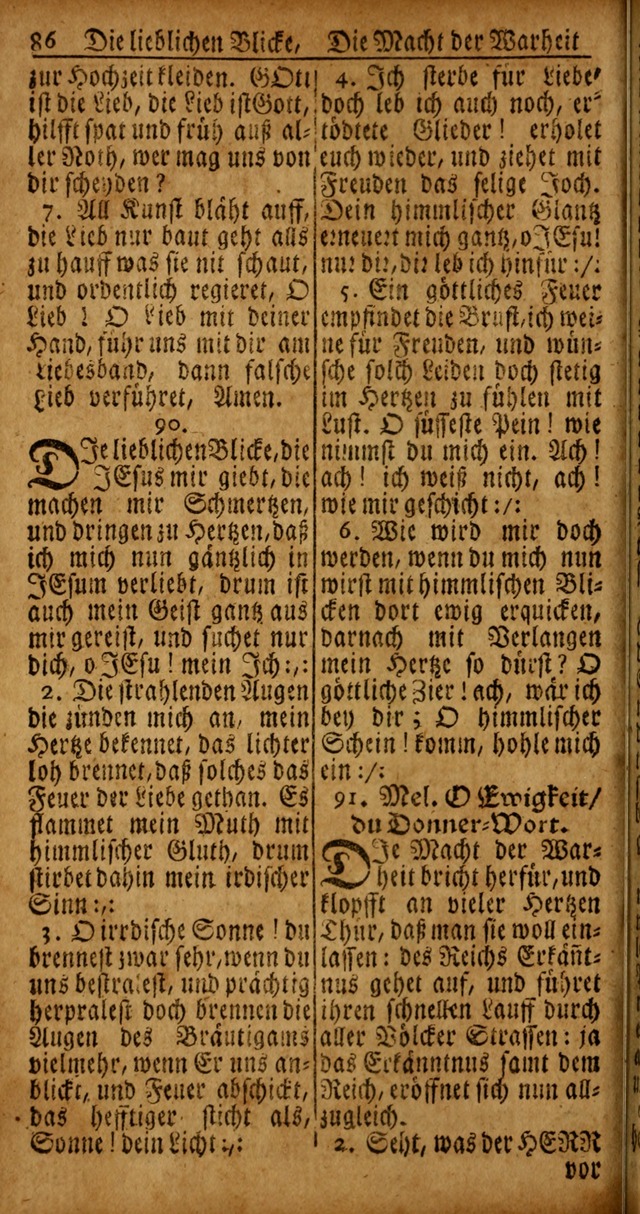 86 Die lieblichen Blicke, Die Macht der Warheit
zur Hochzeit kleiden. GOtt
ist die Lieb, die Lieb ist Gott,
hilfft spat und früh auß al-
ler Noth, wer mag uns von
dir scheyden?
7. All Kunst bläht auff,
die Lieb nur baut geht alls
zu hauff was sie nit schaut,
und ordentlich regieret, O
Lieb! O Lieb mit deiner
Hand, führ uns mit dir am
Liebesband, dann falsche
Lieb verführet, Amen.
90.
DIe lieblichen Blicke, die
JEsus mir giebt, die
machen mir Schmertzen,
und bringen zu Hertzen, daß
ich mich nun gäntzlich in
JEsum verliebt, drum ist
auch mein Geist gantz aus
mir gereist, und suchet nur
dich, o JEsu! mein Jch:,:
2. Die strahlenden Augen
die zünden mich an, mein
Hertze bekennet, das lichter
loh brennet, daß solches das
Feuer der Liebe gethan. Es
flammet mein Muth mit
himmlischer Gluth, drum
stirbet dahin mein irdischer
Sinn:,:
3. O irrdische Sonne! du
brennest zwar sehr, wenn du
uns bestralest, und prächtig
herpralest doch brennen die
Augen des Bräutigams
vielmehr, wenn Er uns an-
blickt, und Feuer abschickt,
das hefftiger sticht als,
Sonne! dein Licht:,:
4. Jch sterbe für Liebe
doch leb ich auch noch, er-
tödtete Glieder! erholet
euch wieder, und ziehet mit
Freuden das selige Joch.
Dein himmlischer Glantz
erneuert mich gantz, o JEsu!
nur dir, dir leb ich hinfür:/:
5. Ein göttliches Feuer
empfindet die Brust, ich wei-
ne für Freuden, und wün-
sche solch Leiden doch stetig
im Hertzen zu fühlen mit
Lust. O süsseste Pein! wie
nimmst du mich ein. Ach!
ach! ich weiß nicht, ach!
wie mir geschicht:/:
6. Wie wird mir doch
werden, wenn du mich nun
wirst mit himmlischen Bli-
cken dort ewig erquicken,
darnach mit Verlangen
mein Hertze so dürst? O
göttliche Zier! ach, wär ich
bey dir; O himmlischer
Schein! komm, hohle mich
ein:/:
91. Mel. O Ewigkeit/
du Donner-Wort.
DIe Macht der War-
heit bricht herfür, und
klopfft an vieler Hertzen
Thür, daß man sie woll ein-
lassen: des Reichs Erkänt-
nus gehet auf, und führet
ihren schnellen Lauff durch
aller Völcker Strassen: ja
das Erkänntnus samt dem
Reich, eröffnet sich nun all-
zugleich.
2. Seht, was der HERR
vor